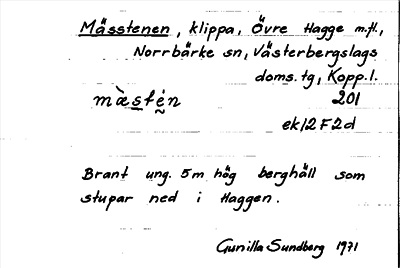 Mässtenen, klippa, Övre Hagge m.fl.,
Norrbärke sn, Västerbergslags
doms.tg, Kopp.l.
mæ̀stén 201
ek 12F2d
Brant ung. 5 m hög berghäll som
stupar ned i Haggen.
Gunilla Sundberg 1971